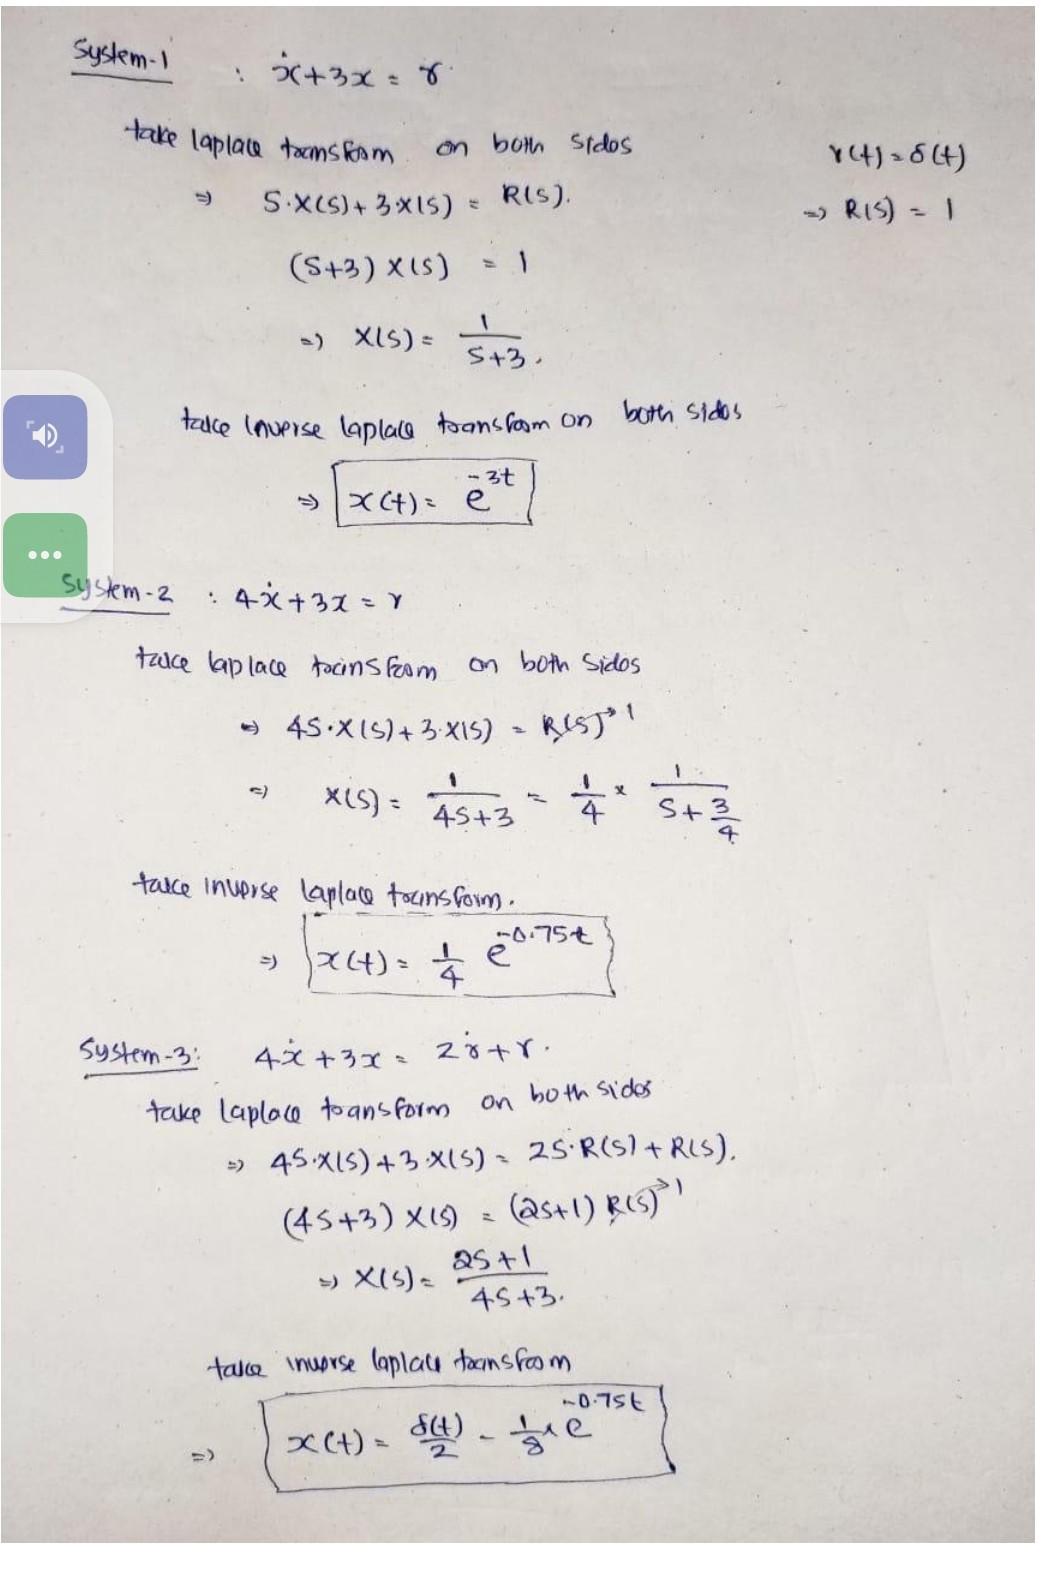 System-1 : ẋ+3x = r
take laplace transform on both sides
r(t) = δ(t)
⇒ S·X(S) + 3·X(S) = R(S).
⇒ R(S) = 1
(S+3) X(S) = 1
⇒ X(S) = 1/(S+3).
take inverse laplace transform on both sides
⇒ x(t) = e^(-3t)
System-2 : 4ẋ+3x = r
take laplace transform on both sides
⇒ 4S·X(S) + 3·X(S) = R(S)→1
⇒ X(S) = 1/(4S+3) = 1/4 × 1/(S+3/4)
take inverse laplace transform.
⇒ x(t) = 1/4 e^(-0.75t)
System-3: 4ẋ+3x = 2ṙ+r.
take laplace transform on both sides
⇒ 4S·X(S)+3·X(S) = 2S·R(S) + R(S).
(4S+3) X(S) = (2S+1) R(S)→1
⇒ X(S) = (2S+1)/(4S+3).
take inverse laplace transform
⇒ x(t) = δ(t)/2 - 1/8 × e^(-0.75t)